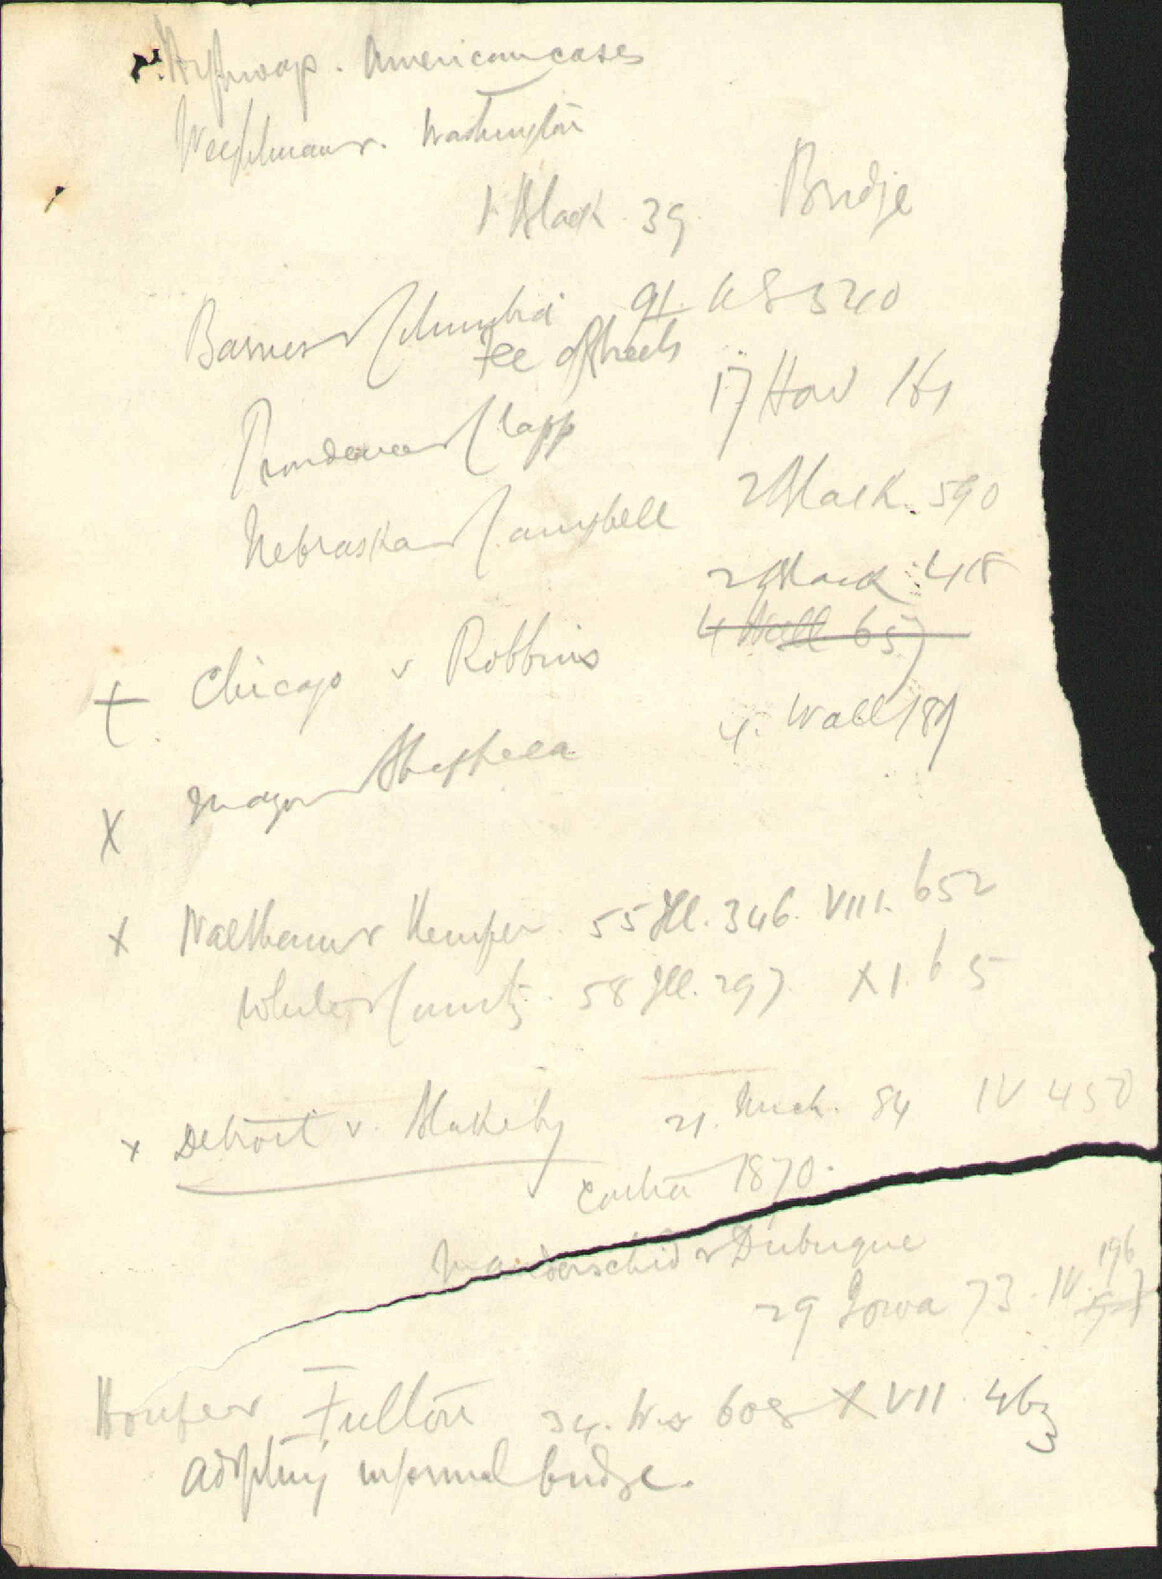 Highways. American cases
Weightman v. Washington
1 Black 39 Bridge
Barnes v Columbia 91 US 540
Fee of Streets
Providence v Clapp 17 How 161
Nebraska v Campbell 2 Black. 590
2 Black 418
4 Wall 657
+ Chicago v Robbins
4. Wall 189
X Mayor v Sheffield
x Waltham v Kemper. 55 Ill. 346. VIII. 652
White v County. 58 Ill. 297. XI. 65
x Detroit v. Blakeby 21. Mich. 84 IV 450
Contra 1870.
Manderschid v Dubuque
29 Iowa 73. IV. 196
Houfe v Fulton 34. Wis 608 XVII. 463
adopting informal bridge.